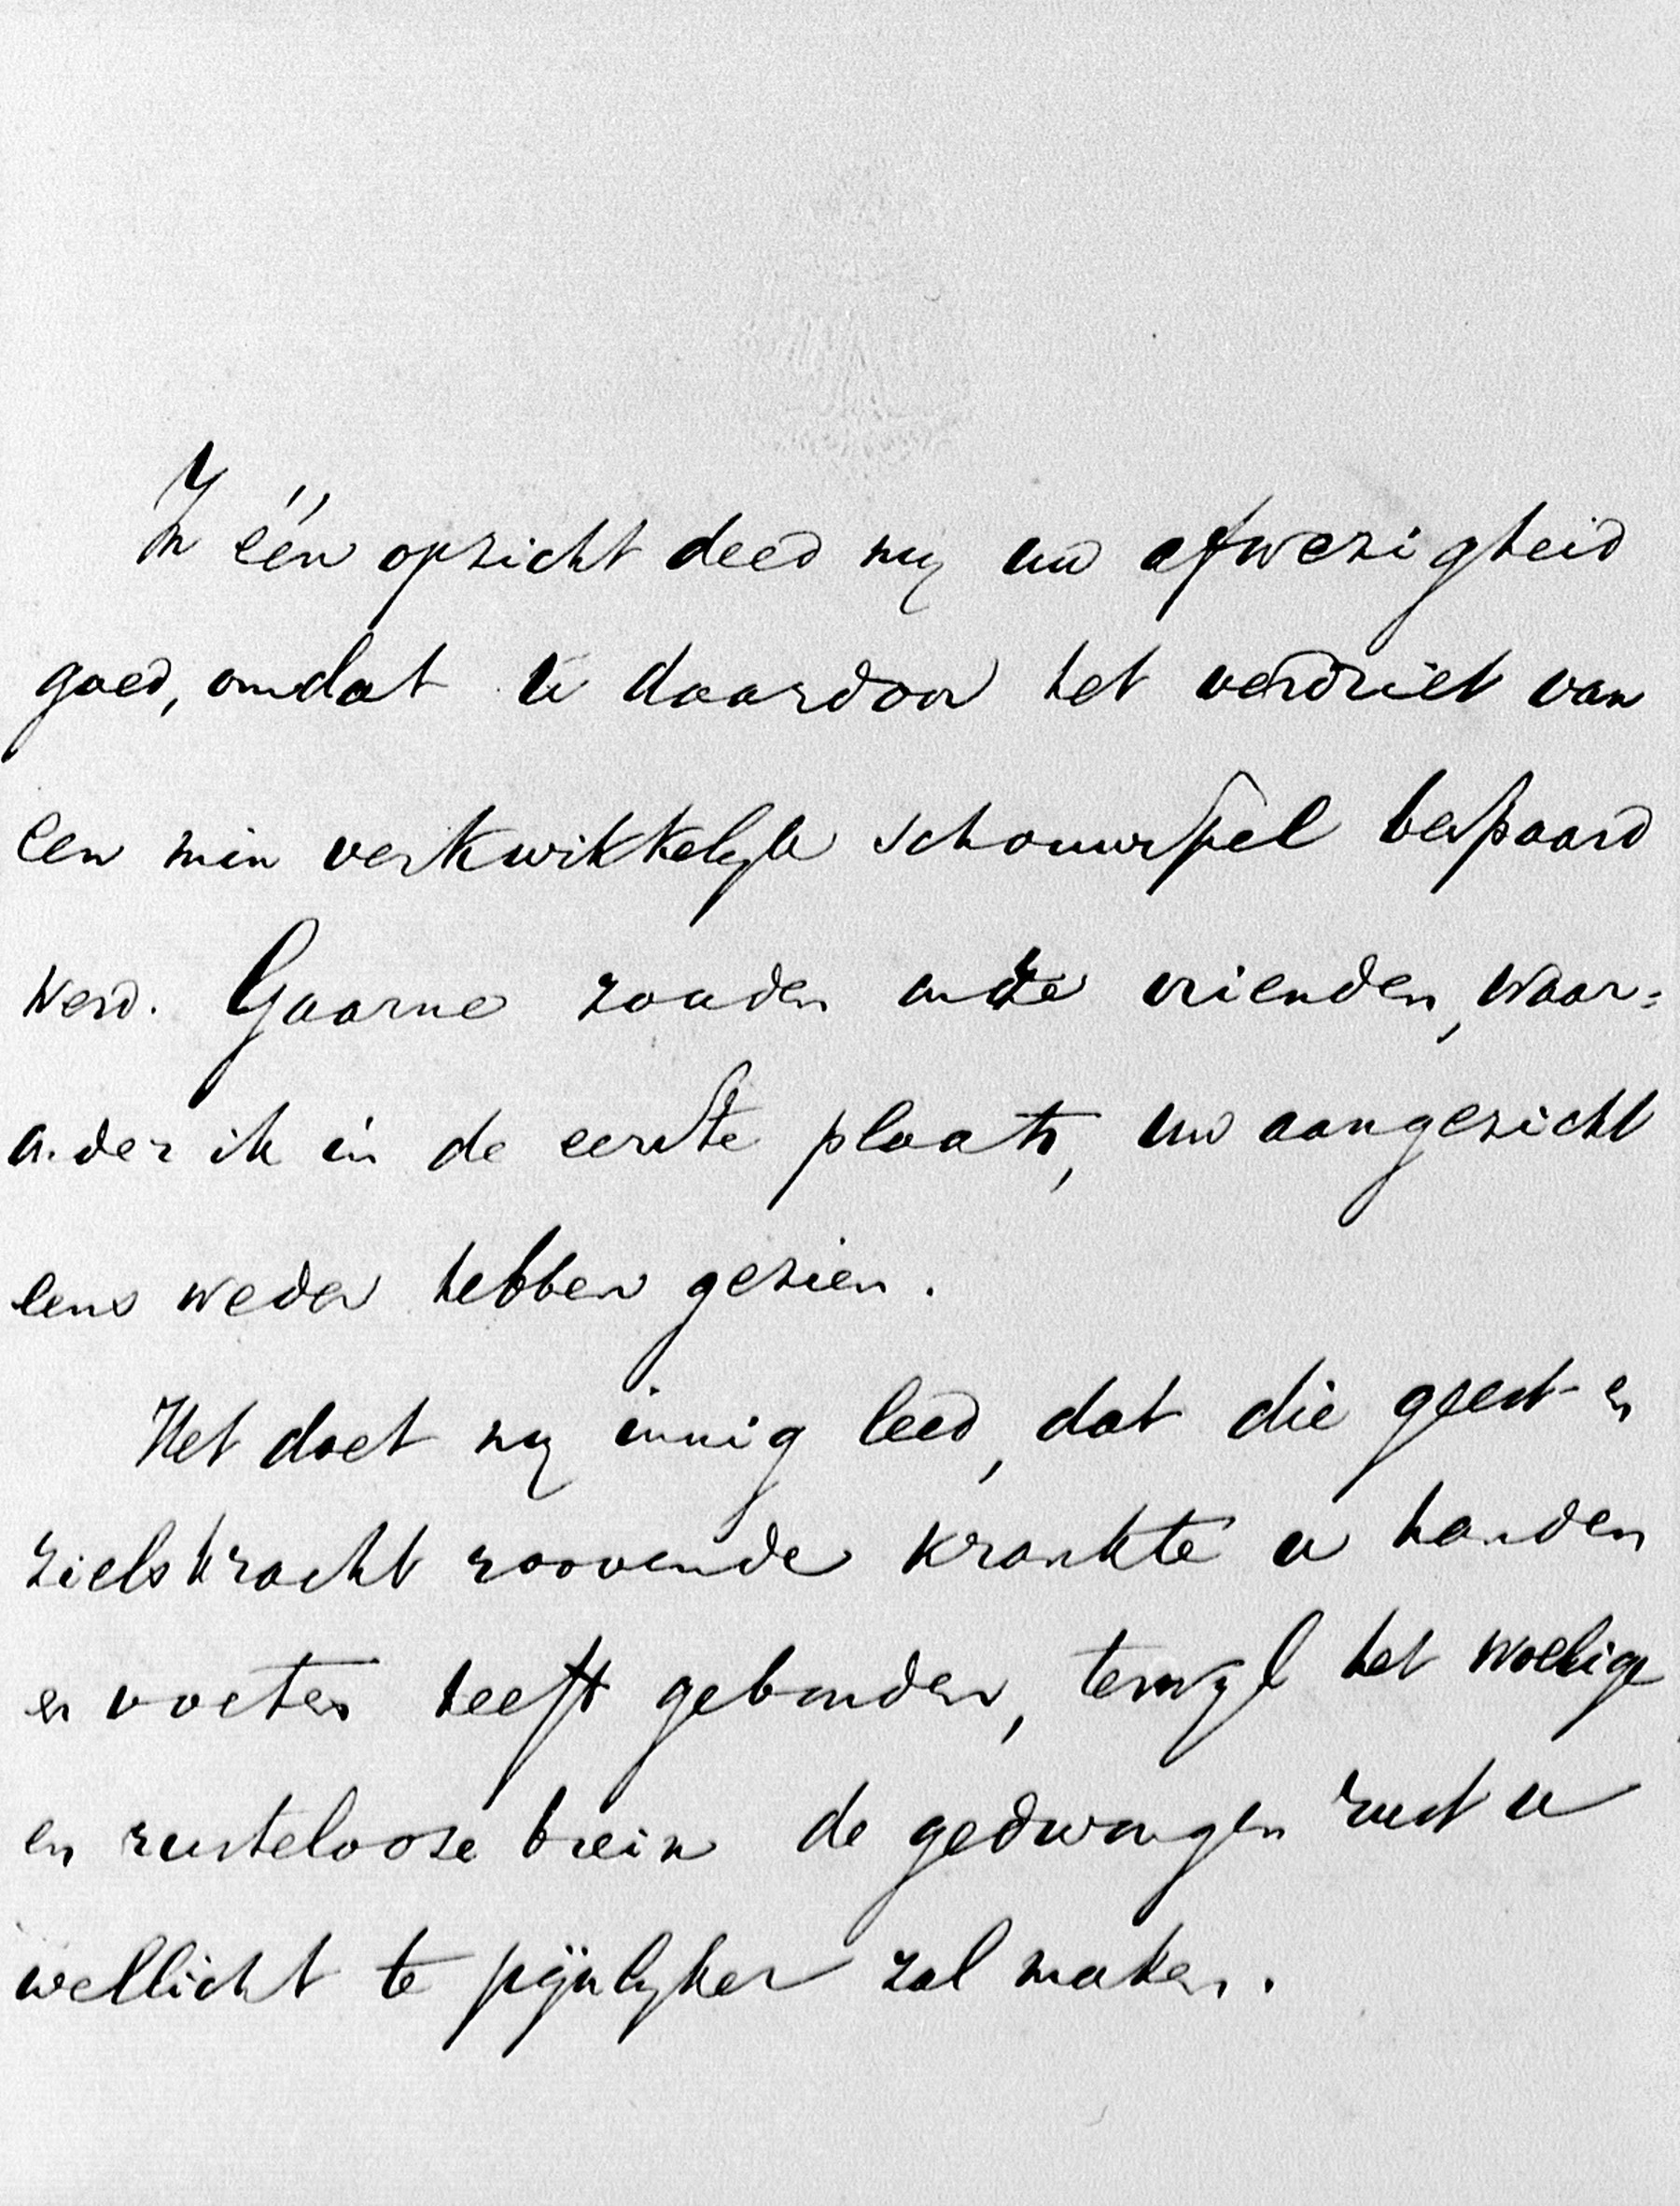 In één opzicht deed my uw afwezigheid
goed, omdat U daardoor het verdriet van
een min verkwikkelyk schouwspel bespaard
werd. Gaarne zouden onze vrienden, waar=
onder ik in de eerste plaats, uw aangezicht
eens weder hebben gezien.
Het doet my innig leed, dat die geest- en
zielskracht roovende krankte u handen
en voeten heeft gebonden, terwyl het woelige
en rustelooze brein de gedwongen rust u
wellicht te pijnlyker zal maken.